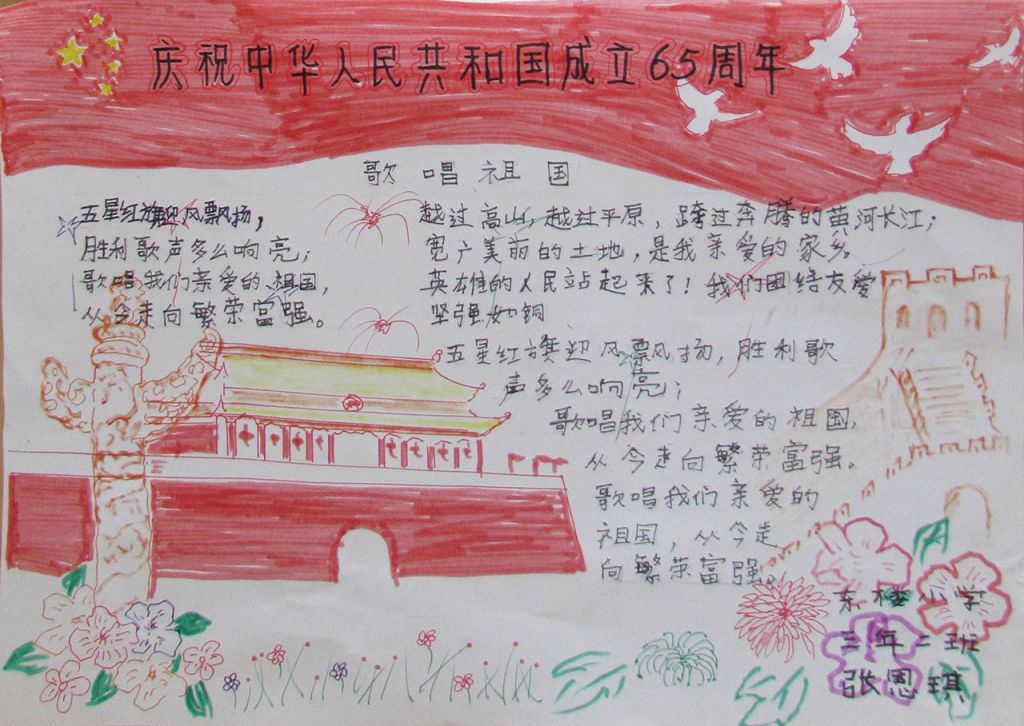 庆祝中华人民共和国成立65周年
歌唱祖国
五星红旗迎风飘扬，
胜利歌声多么响亮；
歌唱我们亲爱的祖国，
从今走向繁荣富强。
越过高山，越过平原，跨过奔腾的苗河长江；
宽广美丽的土地，是我亲爱的家乡。
英雄的人民站起来了！我们团结友爱
坚强如钢
五星红旗迎风飘扬，胜利歌
声多么响亮；
歌唱我们亲爱的祖国，
从今走向繁荣富强。
歌唱我们亲爱的
祖国，从今走
向繁荣富强。
东楼小学
三年二班
张恩琪